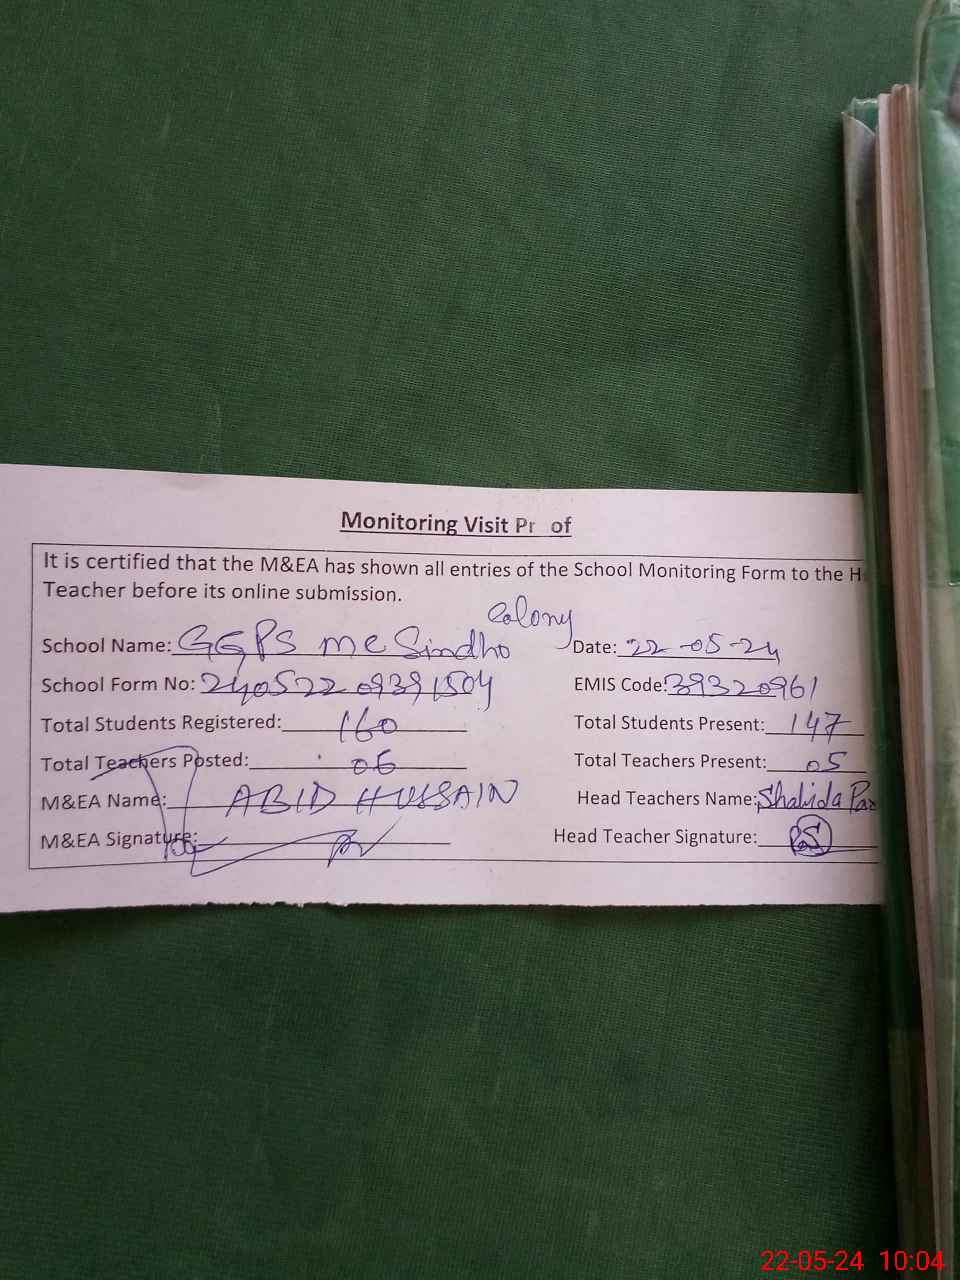 Monitoring Visit Pr of
It is certified that the M&EA has shown all entries of the School Monitoring Form to the H
Teacher before its online submission.
School Name: GGPS MC Sindho Colony Date: 22-05-24
School Form No: 240522 09391504 EMIS Code: 39320961
Total Students Registered: 160 Total Students Present: 147
Total Teachers Posted: 06 Total Teachers Present: 05
M&EA Name: ABID HUSSAIN Head Teachers Name: Shahida Par
M&EA Signature: Head Teacher Signature:
22-05-24 10:04